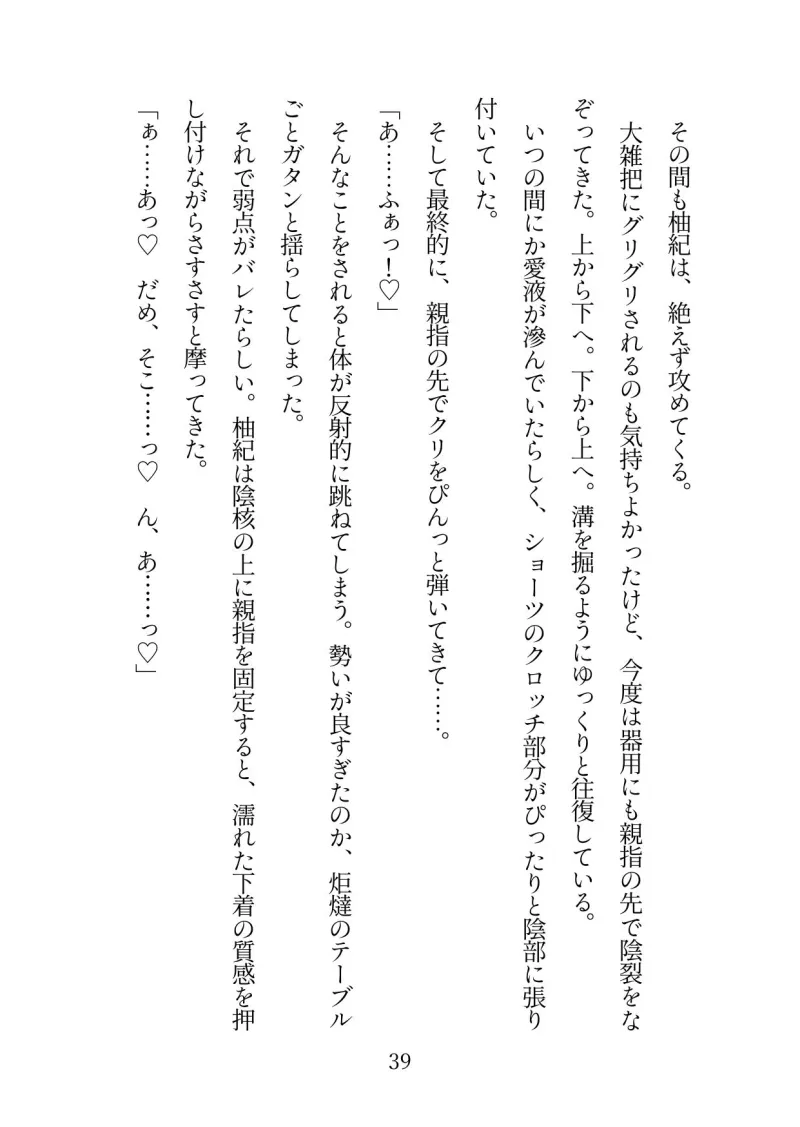 その間も柚紀は、絶えず攻めてくる。
大雑把にグリグリされるのも気持ちよかったけど、今度は器用にも親指の先で陰裂をな
ぞってきた。上から下へ。下から上へ。溝を掘るようにゆっくりと往復している。
いつの間にか愛液が滲んでいたらしく、ショーツのクロッチ部分がぴったりと陰部に張り
付いていた。
そして最終的に、親指の先でクリをぴんっと弾いてきて……。
「あ……ふぁっ！♡」
そんなことをされると体が反射的に跳ねてしまう。勢いが良すぎたのか、炬燵のテーブル
ごとガタンと揺らしてしまった。
それで弱点がバレたらしい。柚紀は陰核の上に親指を固定すると、濡れた下着の質感を押
し付けながらさすさすと摩ってきた。
「ぁ……あっ♡　だめ、そこ……っ♡　ん、あ……っ♡」
39